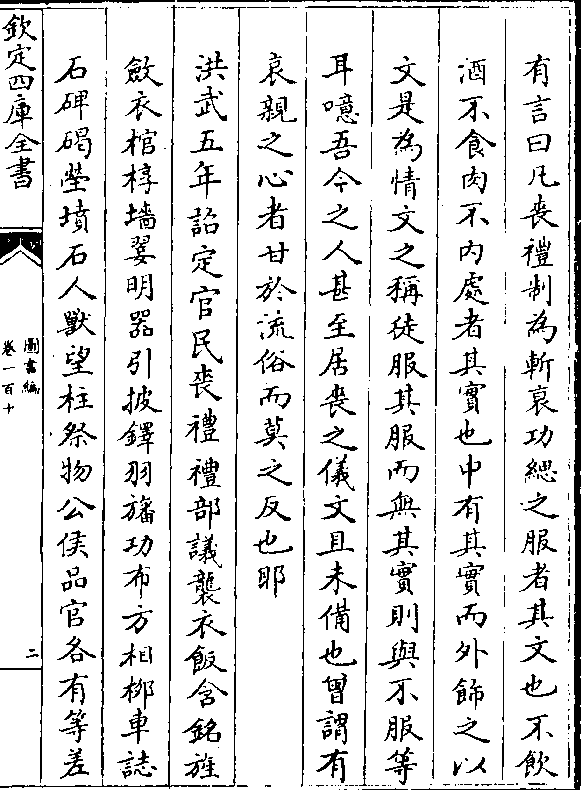 有言曰凡喪禮制為斬衰功緦之服者其文也不飲
酒不食肉不内處者其實也中有其實而外飾之以
文是為情文之稱徒服其服而無其實則與不服等
耳噫吾今之人甚至居喪之儀文且未備也曾謂有
哀親之心者甘於流俗而莫之反也耶
洪武五年詔定官民喪禮禮部議襲衣飯含銘旌
斂衣棺椁墻翣明器引披鐸羽旛功布方相柳車誌
石碑碣塋墳石人獸望柱祭物公侯品官各有等差
欽定四庫全書
圖書編
卷一百十
二